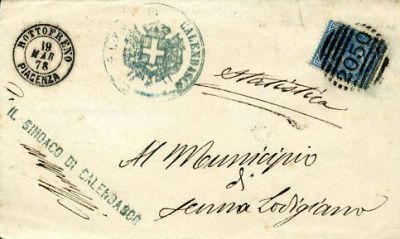 ROTTOFRENO
19
MAR
78
PIACENZA
CALENDASCO
2050
Statistica
IL SINDACO DI CALENDASCO
Al Municipio
di
Senna Lodigiano